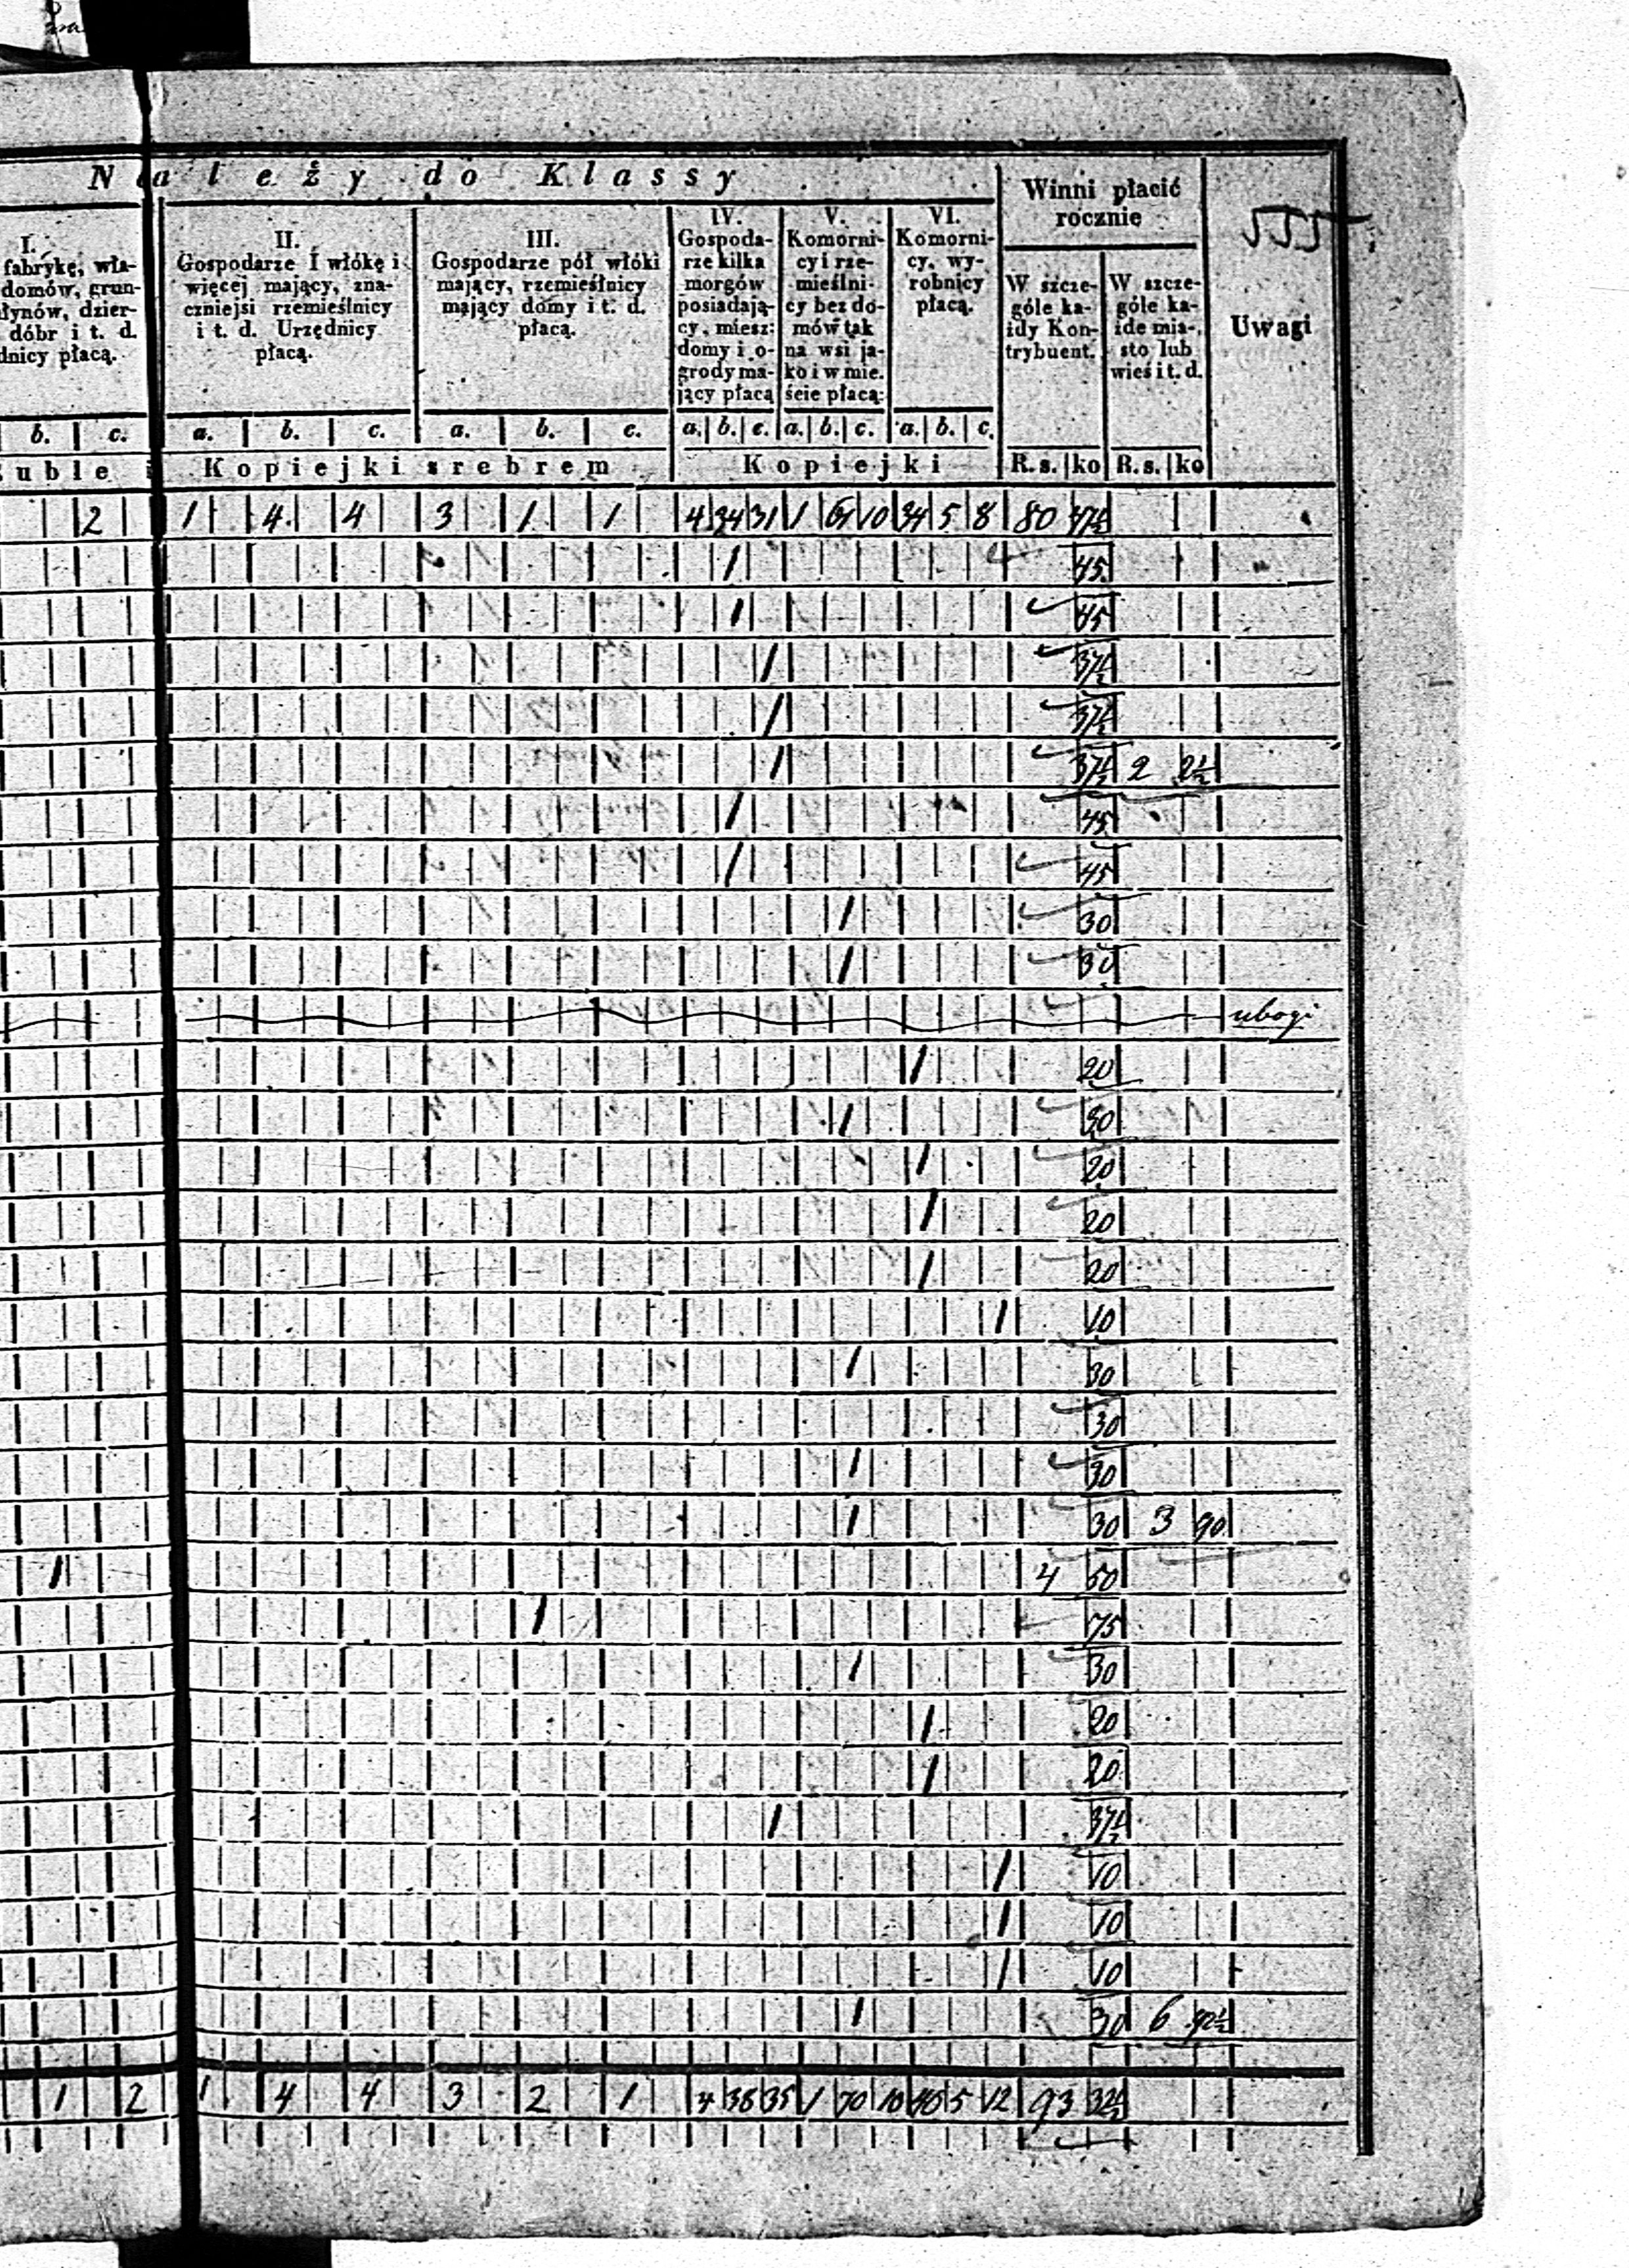 Należy do Klassy
Winni płacić rocznie
Uwagi
I.
fabrykę, wła-
domów, grun-
łynów, dzier-
dóbr i t. d.
dnicy płacą.
II.
Gospodarze I włókę i
więcej mający, zna-
czniejsi rzemieślnicy
i t. d. Urzędnicy
płacą.
III.
Gospodarze pół włóki
mający, rzemieślnicy
mający domy i t. d.
płacą.
IV.
Gospoda-
rze kilka
morgów
posiadają-
cy, miesz:
domy i o-
grody ma-
jący płacą
V.
Komorni-
cy i rze-
mieślni-
cy bez do-
mów tak
na wsi ja-
ko i w mie.
ście płacą:
VI.
Komorni-
cy, wy-
robnicy
płacą.
W szcze-
góle ka-
żdy Kon-
trybuent.
W szcze-
góle ka-
żde mia-
sto lub
wieś i t. d.
b. c. a. b. c. a. b. c. a. b. c. a. b. c. a. b. c.
uble Kopiejki srebrem Kopiejki R. s. ko R. s. ko
2 1 4 4 3 1 1 4 34 31 1 61 10 34 5 8 80 37½
1 45
1 45
1 37½
1 37½
1 37½ 2 2½
1 45
1 45
1 30
1 30
ubogi
1 20
1 30
1 20
1 20
1 20
1 10
1 30
30
1 30
1 30 3 90
1 4 50
1 75
1 30
1 20
1 20
1 37½
1 10
1 10
1 10
1 30 6 92½
1 2 1 4 4 3 2 1 4 38 35 1 70 10 40 5 12 93 32½